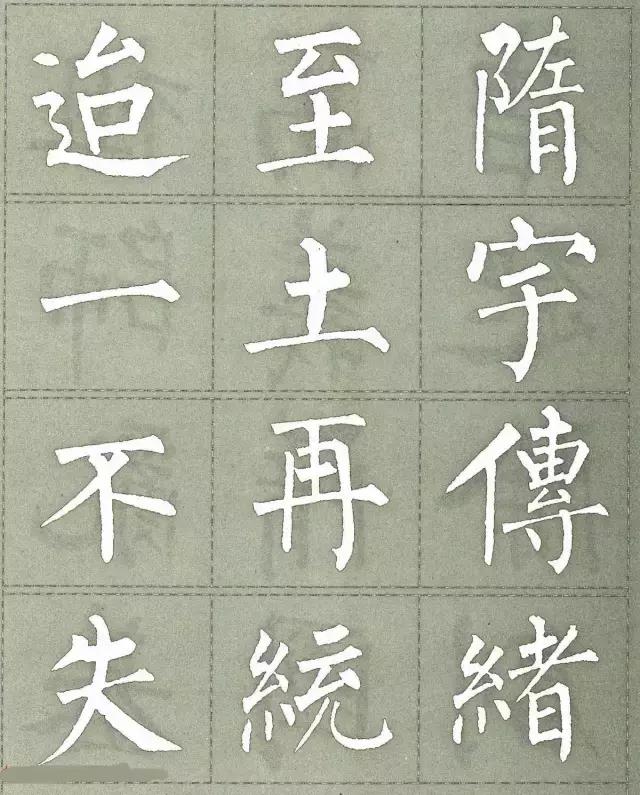 隋宇傳緒
至土再統
迨一不失